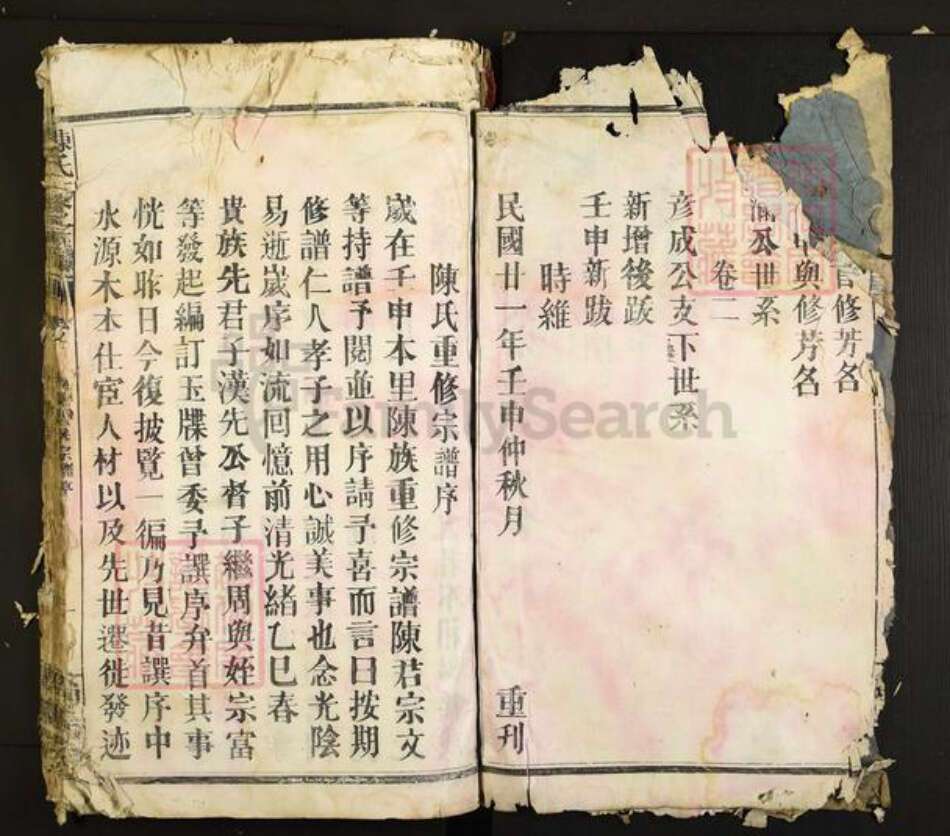 修芳名
與修芳名
公世系
卷二
彦成公支下世系
新增後跋
壬申新跋
時維
民國廿一年壬申仲秋月 重刊
陳氏重修宗譜序
歲在壬申本里陳族重修宗譜陳君宗文
等持譜予閱並以序請予喜而言曰按期
修譜仁人孝子之用心誠美事也念光陰
易逝歲序如流回憶前清光緒乙巳春
貴族先君子漢先公督子繼周與姪宗富
等發起編訂玉牒曾委予譔序弁首其事
恍如昨日今復披覽一徧乃見昔譔序中
水源木本仕宦人材以及先世遷徙發迹
FamilySearch